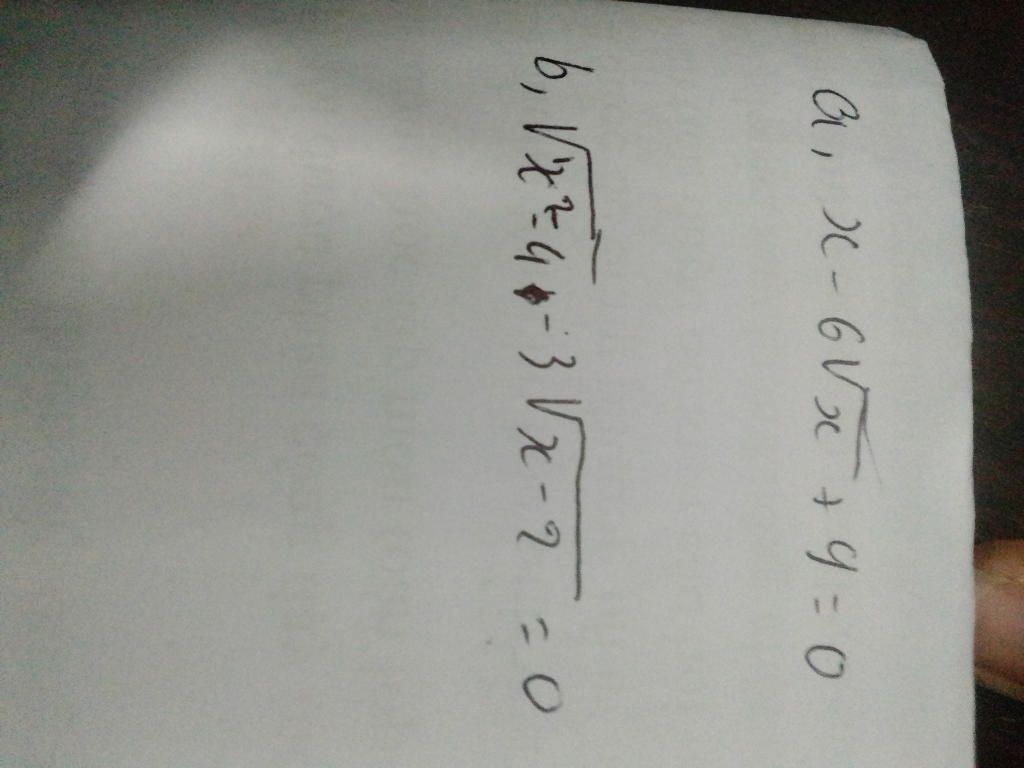 a, x - 6√x + 9 = 0
b, √x² - 4 - 3√x - 2 = 0